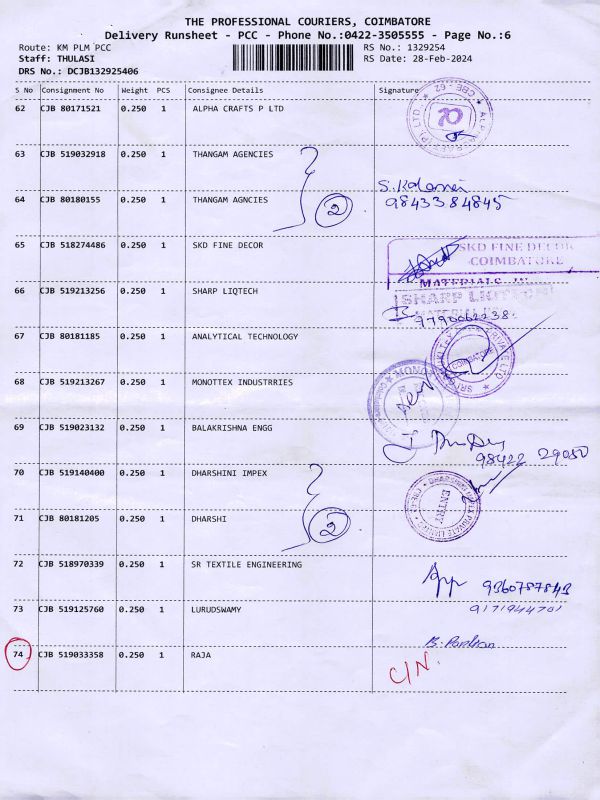 THE PROFESSIONAL COURIERS, COIMBATORE
Delivery Runsheet - PCC - Phone No.:0422-3505555 - Page No.:6
Route: KM PLM PCC RS No.: 1329254
Staff: THULASI RS Date: 28-Feb-2024
DRS No.: DCJB132925406
S No Consignment No Weight PCS Consignee Details Signature
62 CJB 80171521 0.250 1 ALPHA CRAFTS P LTD
CBE - 62
63 CJB 519032918 0.250 1 THANGAM AGENCIES
64 CJB 80180155 0.250 1 THANGAM AGNCIES
2
9843384845
65 CJB 518274486 0.250 1 SKD FINE DECOR
SKD FINE DECOR
COIMBATORE
66 CJB 519213256 0.250 1 SHARP LIQTECH
SHARP LIQTECH
67 CJB 80181185 0.250 1 ANALYTICAL TECHNOLOGY
COIMBATORE
68 CJB 519213267 0.250 1 MONOTTEX INDUSTRRIES
69 CJB 519023132 0.250 1 BALAKRISHNA ENGG
98422 29050
70 CJB 519140400 0.250 1 DHARSHINI IMPEX
DHARSHINI IMPEX PRIVATE LIMITED
ENTRY
71 CJB 80181205 0.250 1 DHARSHI
2
72 CJB 518970339 0.250 1 SR TEXTILE ENGINEERING
9360787843
73 CJB 519125760 0.250 1 LURUDSWAMY
9171944701
74 CJB 519033358 0.250 1 RAJA
C/N.